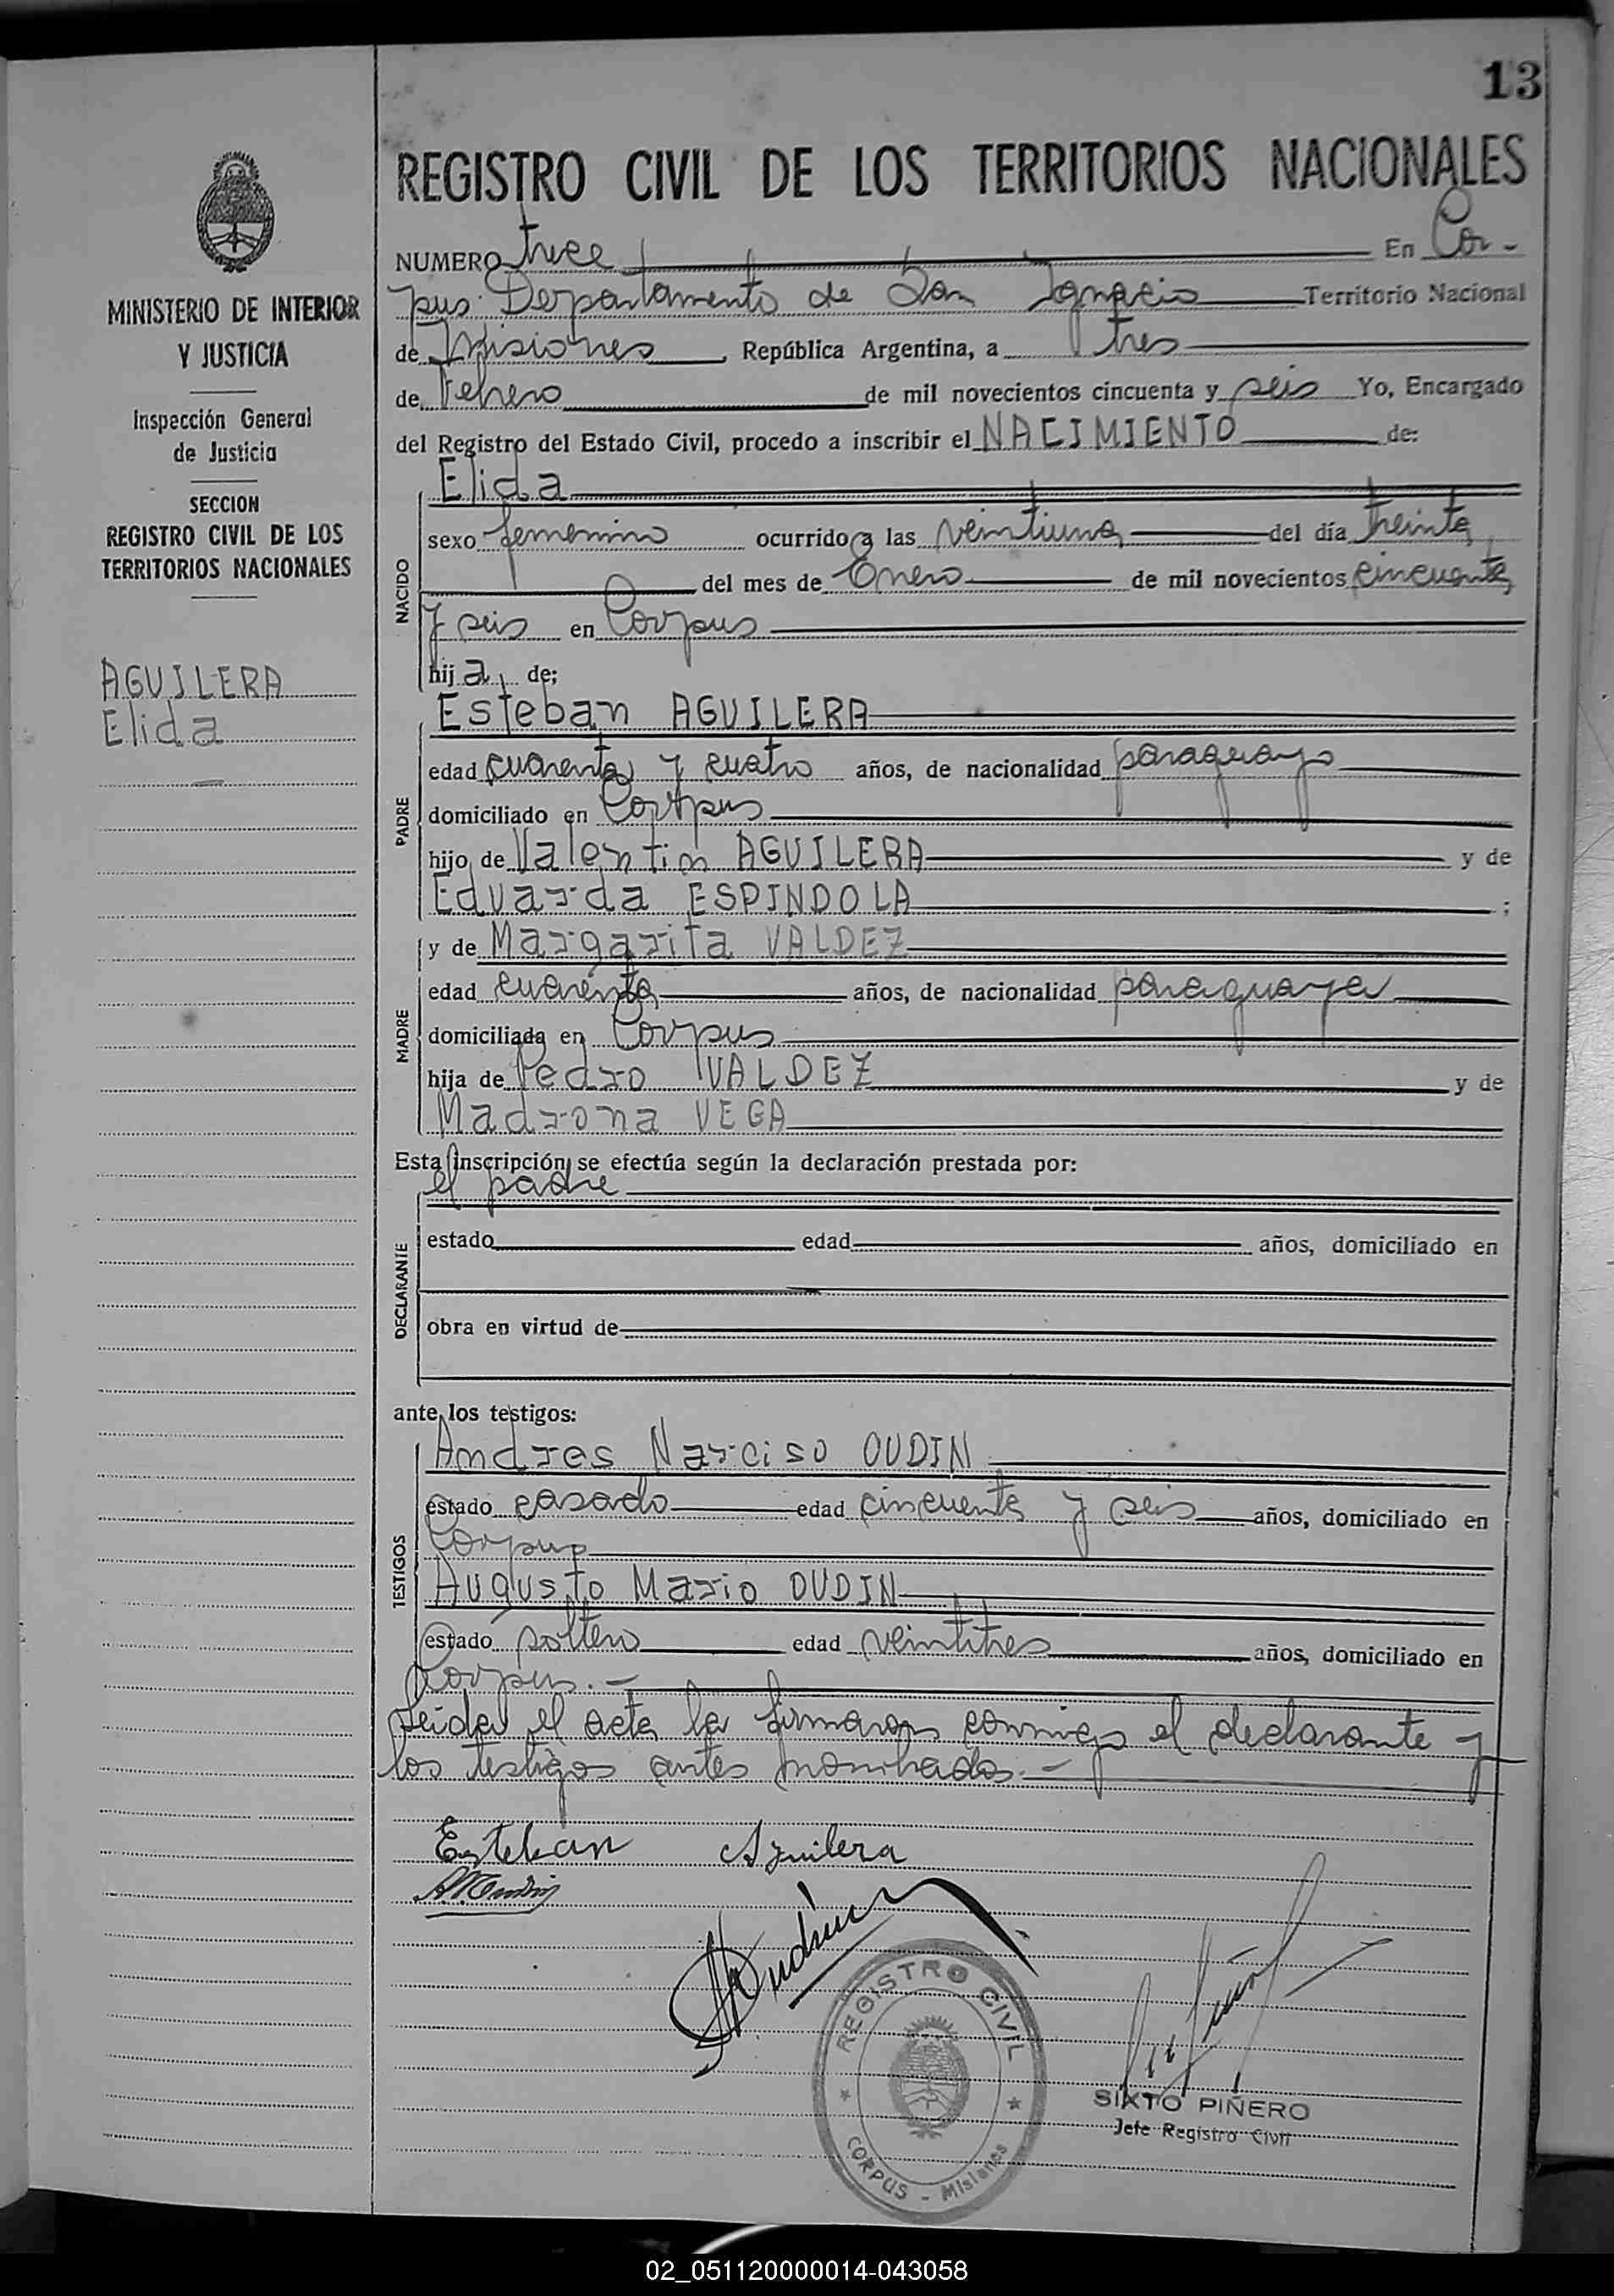 13
MINISTERIO DE INTERIOR
Y JUSTICIA
Inspección General
de Justicia
SECCION
REGISTRO CIVIL DE LOS
TERRITORIOS NACIONALES
AGUILERA
Elida
REGISTRO CIVIL DE LOS TERRITORIOS NACIONALES
NUMERO trece En Cor-
pus Departamento de San Ignacio Territorio Nacional
de Misiones, República Argentina, a tres
de Febrero de mil novecientos cincuenta y seis Yo, Encargado
del Registro del Estado Civil, procedo a inscribir el NACIMIENTO de:
NACIDO
Elida
sexo femenino ocurrido a las veintiuna del día treinta
del mes de Enero de mil novecientos cincuenta
y seis en Corpus
hija de;
PADRE
Esteban AGUILERA
edad cuarenta y cuatro años, de nacionalidad paraguayo
domiciliado en Corpus
hijo de Valentin AGUILERA y de
Eduarda ESPINDOLA ;
MADRE
y de Margarita VALDEZ
edad cuarenta años, de nacionalidad paraguaya
domiciliada en Corpus
hija de Pedro VALDEZ y de
Madrona VEGA
Esta inscripción se efectúa según la declaración prestada por:
DECLARANTE
el padre
estado edad años, domiciliado en
obra en virtud de
ante los testigos:
TESTIGOS
Andres Narciso OUDIN
estado casado edad cincuenta y seis años, domiciliado en
Corpus
Augusto Mario OUDIN
estado soltero edad veintitres años, domiciliado en
Corpus.-
Leida el acta la firmaron conmigo el declarante y
los testigos antes nombrados.-
Esteban Aguilera
REGISTRO CIVIL
CORPUS - Misiones
SIXTO PIÑERO
Jefe Registro Civil
02_051120000014-043058